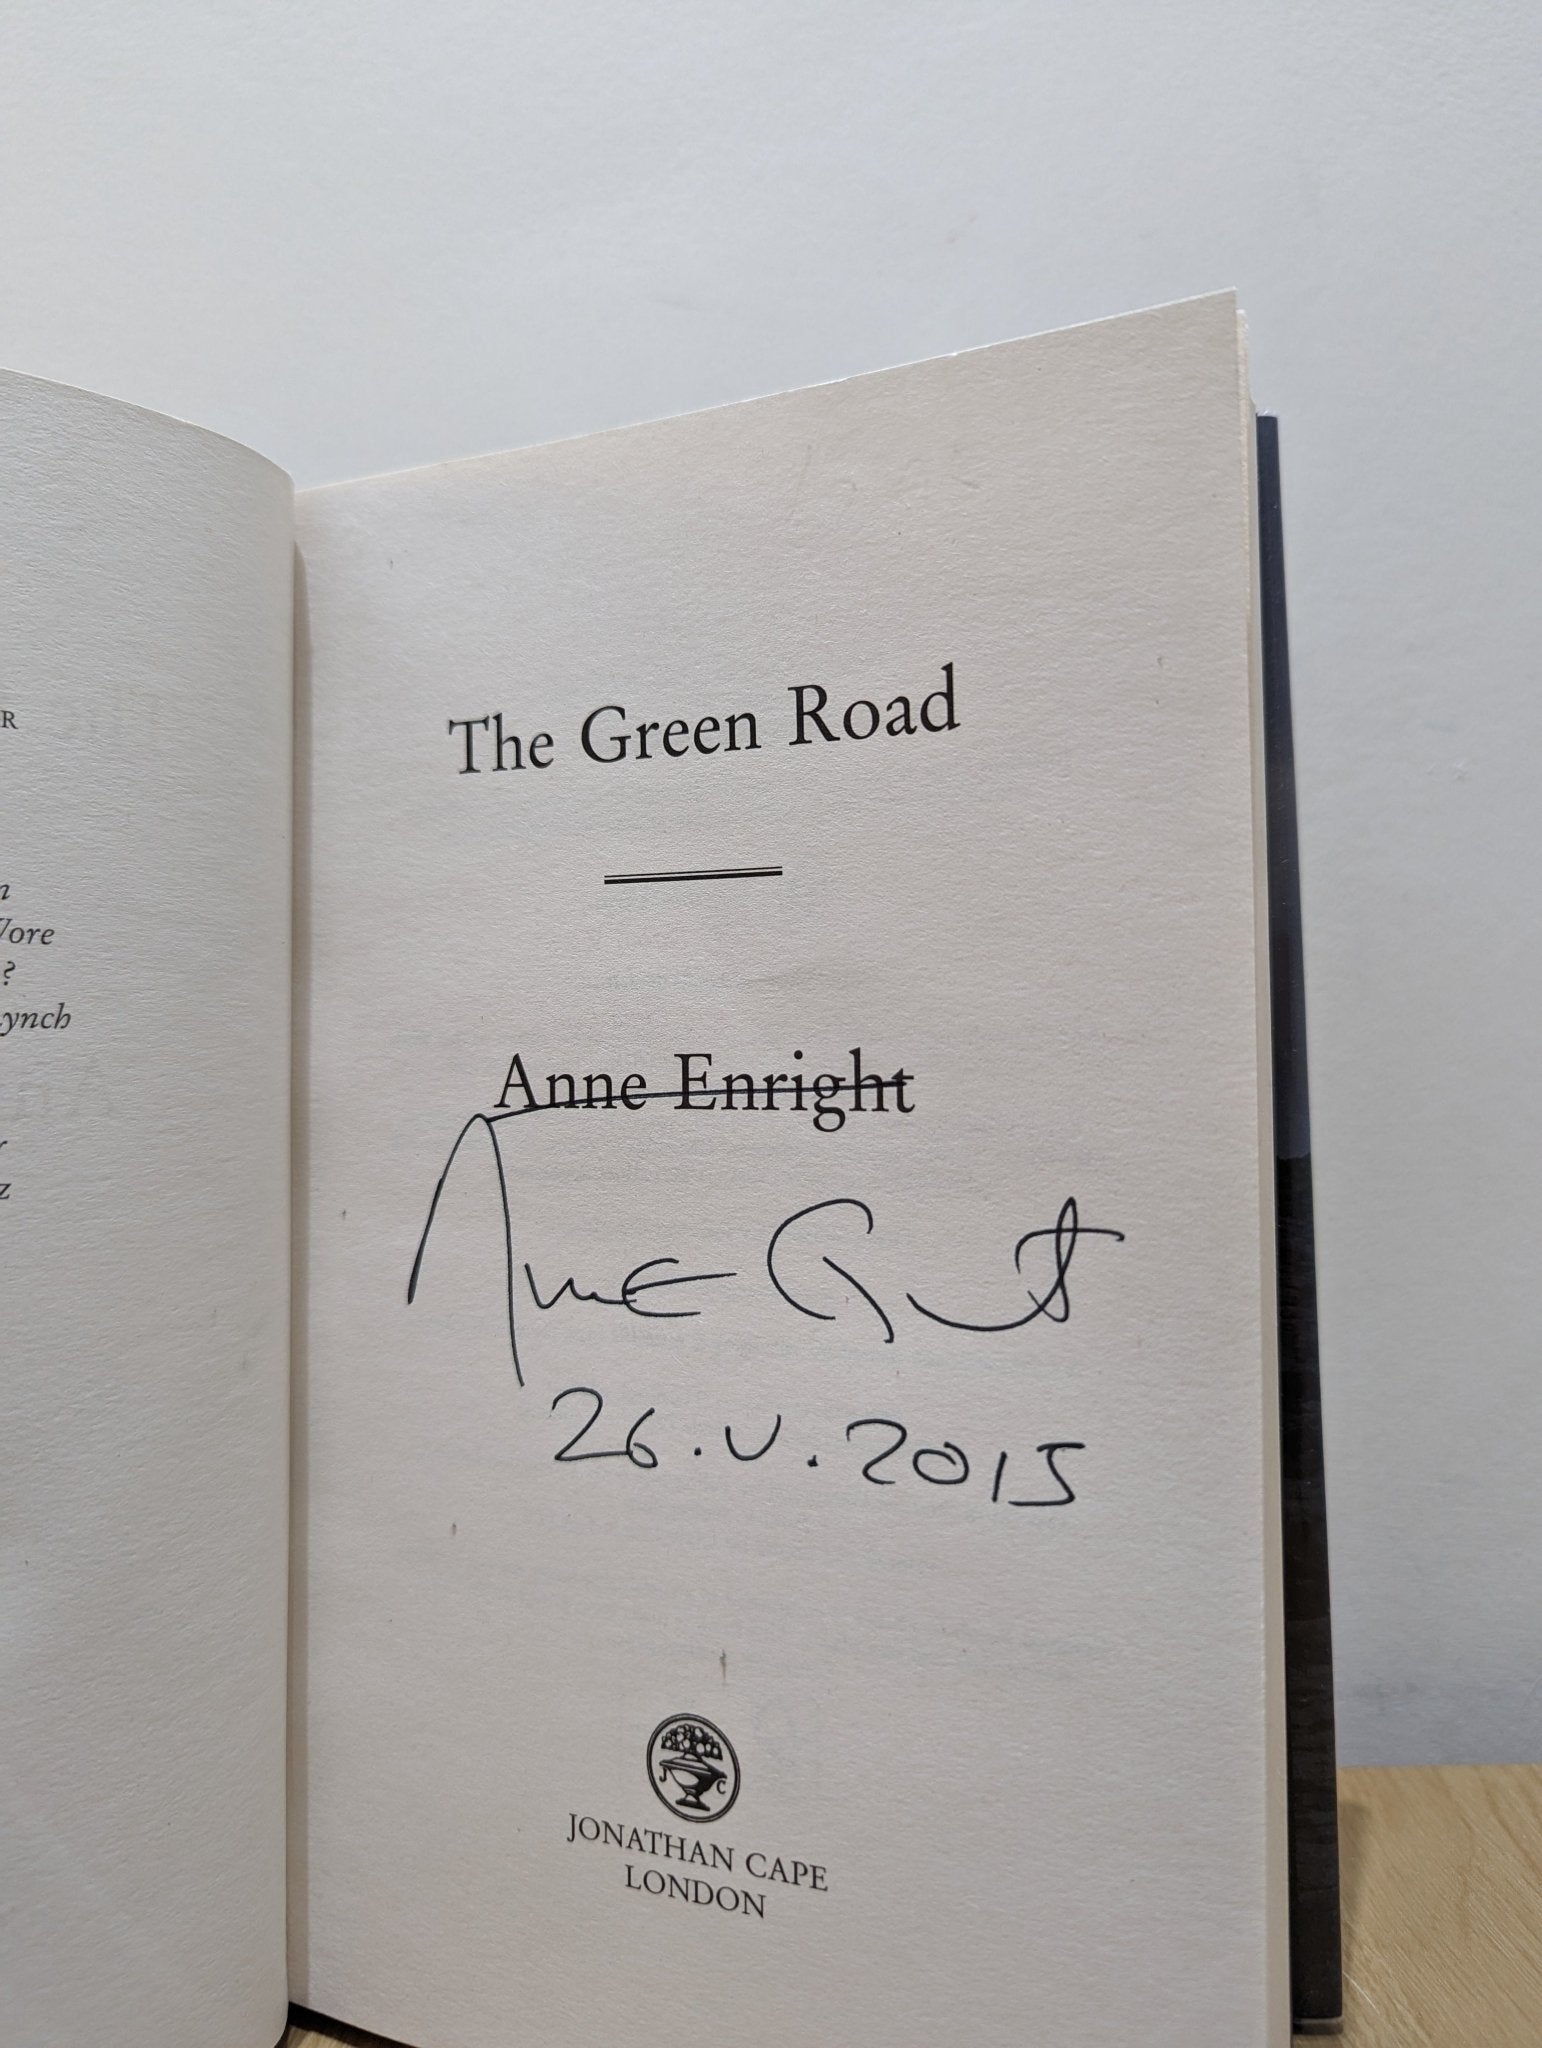 R
n
Vore
?
Lynch
r
z
The Green Road
Anne Enright
Anne Enright
26.V.2015
J C
JONATHAN CAPE
LONDON